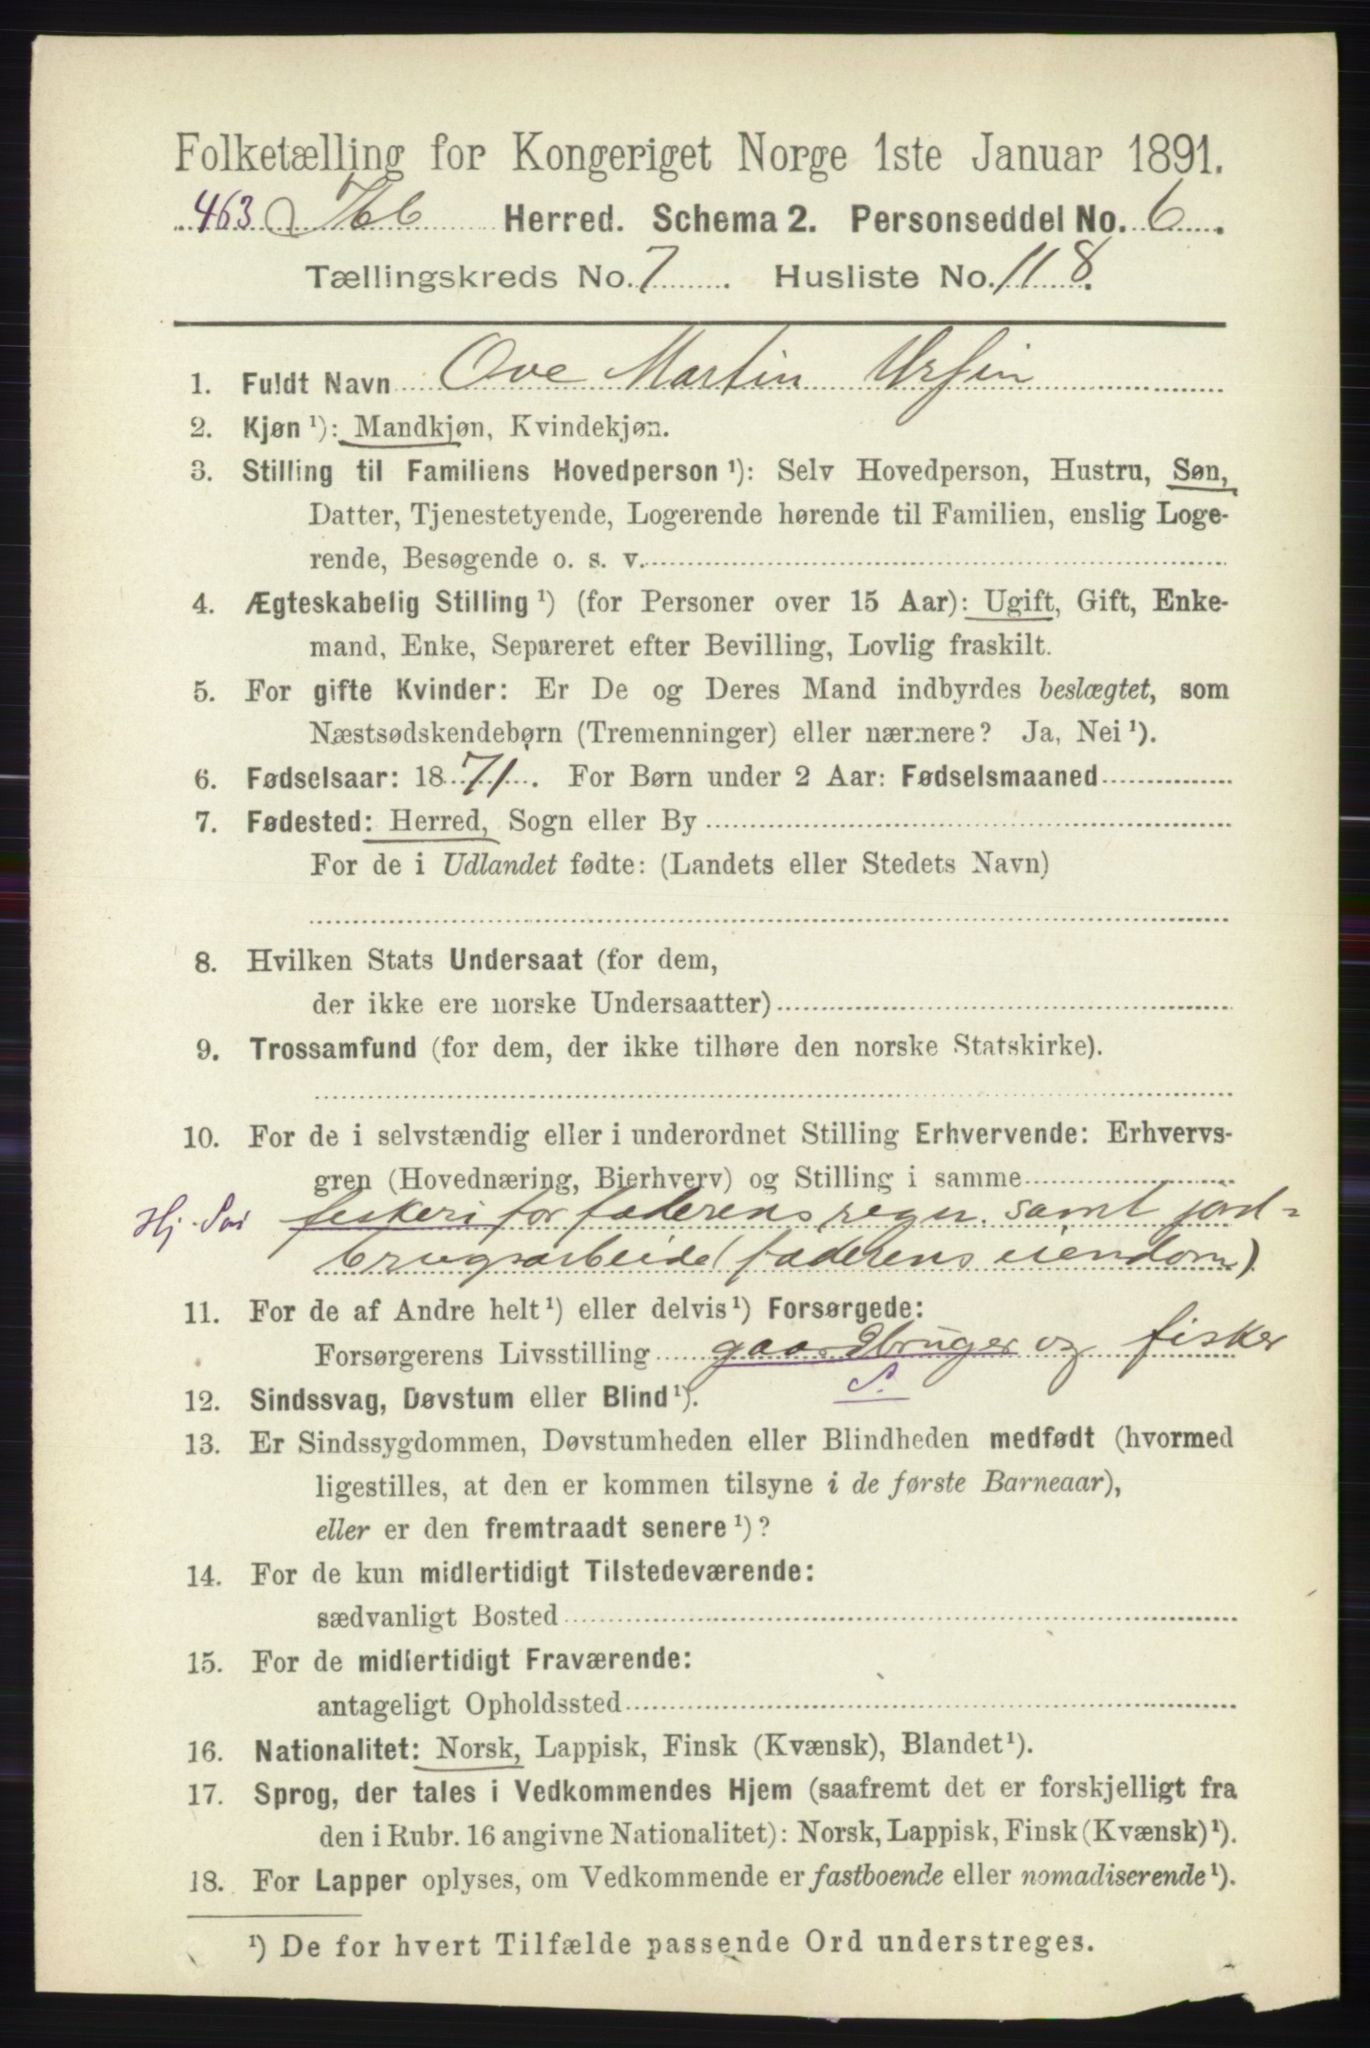 Folketælling for Kongeriget Norge 1ste Januar 1891.
463 Ibb Herred. Schema 2. Personseddel No. 6.
Tællingskreds No. 7. Husliste No. 118.
1. Fuldt Navn Ove Martin Ursin
2. Kjøn ¹): Mandkjøn, Kvindekjøn.
3. Stilling til Familiens Hovedperson ¹): Selv Hovedperson, Hustru, Søn,
Datter, Tjenestetyende, Logerende hørende til Familien, enslig Loge-
rende, Besøgende o. s. v.
4. Ægteskabelig Stilling ¹) (for Personer over 15 Aar): Ugift, Gift, Enke-
mand, Enke, Separeret efter Bevilling, Lovlig fraskilt.
5. For gifte Kvinder: Er De og Deres Mand indbyrdes beslægtet, som
Næstsødskendebørn (Tremenninger) eller nærmere? Ja, Nei ¹).
6. Fødselsaar: 1871. For Børn under 2 Aar: Fødselsmaaned
7. Fødested: Herred, Sogn eller By
For de i Udlandet fødte: (Landets eller Stedets Navn)
8. Hvilken Stats Undersaat (for dem,
der ikke ere norske Undersaatter)
9. Trossamfund (for dem, der ikke tilhøre den norske Statskirke).
10. For de i selvstændig eller i underordnet Stilling Erhvervende: Erhvervs-
gren (Hovednæring, Bierhverv) og Stilling i samme
fiskeri for faderens regn. samt jord=
brugsarbeide (faderens eiendom)
11. For de af Andre helt ¹) eller delvis ¹) Forsørgede:
Forsørgerens Livsstilling gaardbruger og fisker
S.
12. Sindssvag, Døvstum eller Blind ¹).
13. Er Sindssygdommen, Døvstumheden eller Blindheden medfødt (hvormed
ligestilles, at den er kommen tilsyne i de første Barneaar),
eller er den fremtraadt senere ¹)?
14. For de kun midlertidigt Tilstedeværende:
sædvanligt Bosted
15. For de midlertidigt Fraværende:
antageligt Opholdssted
16. Nationalitet: Norsk, Lappisk, Finsk (Kvænsk), Blandet ¹).
17. Sprog, der tales i Vedkommendes Hjem (saafremt det er forskjelligt fra
den i Rubr. 16 angivne Nationalitet): Norsk, Lappisk, Finsk (Kvænsk) ¹).
18. For Lapper oplyses, om Vedkommende er fastboende eller nomadiserende ¹).
¹) De for hvert Tilfælde passende Ord understreges.